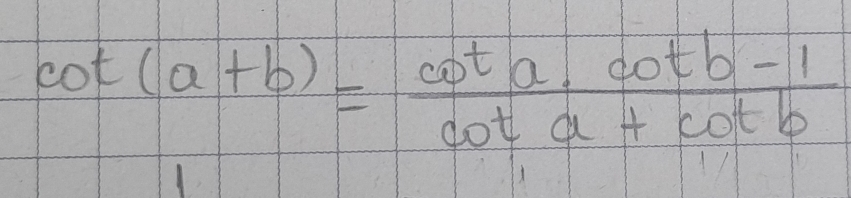 cot (a + b) = cot a . cot b - 1
cot a + cot b